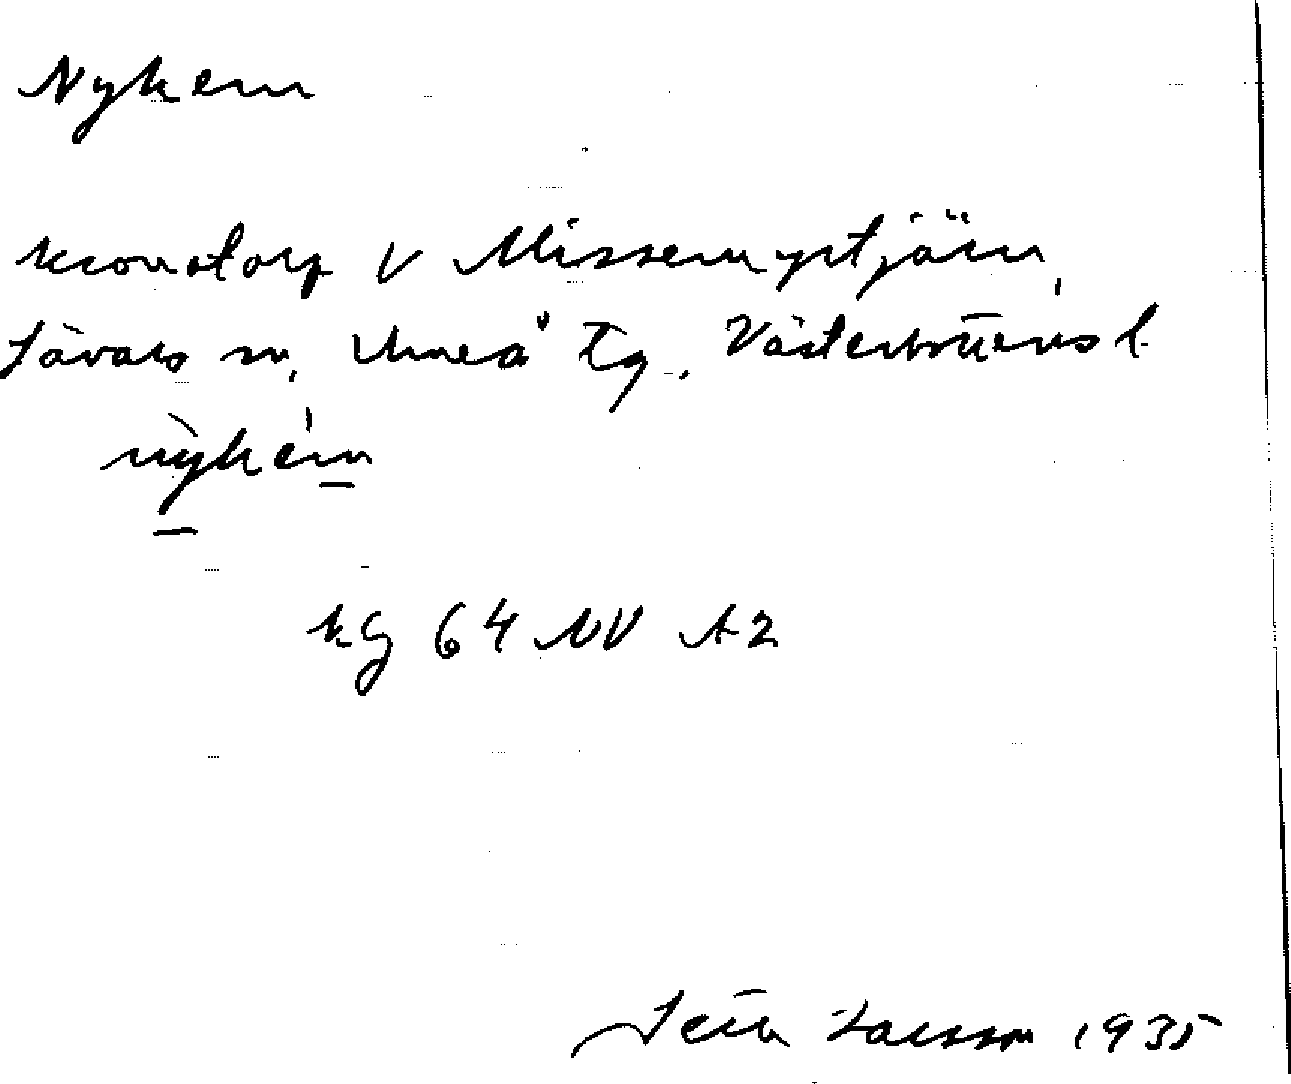 Nyhem
kronotorp V Missemyrtjärn,
Sävars sn, Umeå tg. Västerbottens l.
nyhèm
kg 64 NV A2
Larsson 1935